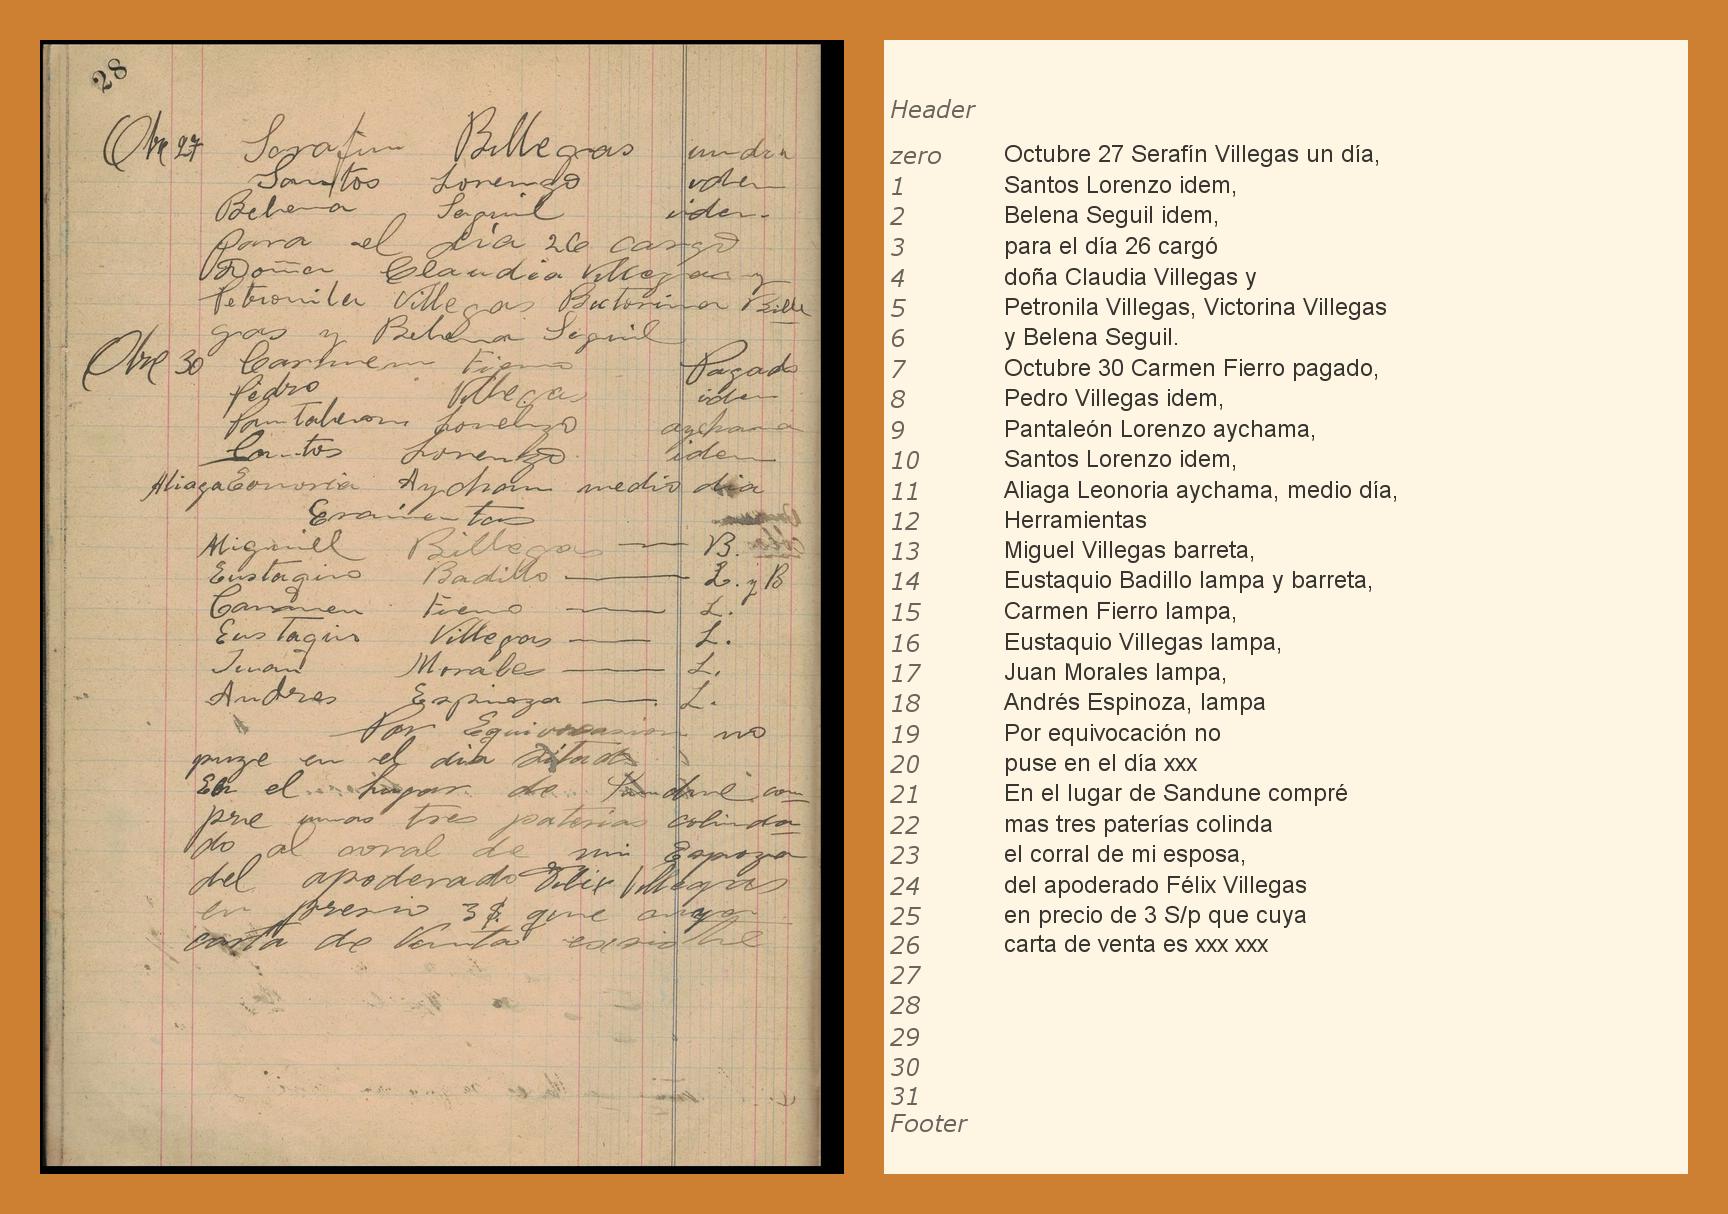 28
Obre 27 Serafin Billegas un dia
Santos Lorenzo iden
Belena Seguil iden.
para el dia 26 cargo
Doña Claudia Villegas y
Petronila Villegas Bictorina Bille
gas y Belena Seguil
Obre 30 Carmen Fierro Pagado
Pedro Villegas iden
Pantaleon Lorenzo aychama
Santos Lorenzo iden
Aliaga Eonoria Aycham medio dia
Eraimentas
Miguiel Billegas — B.
Eustaqino Badillo — L. y B
Carmen Fierro — L.
Eustaqiu Villegas — L.
Juan Morales — L.
Andres Espinoza — L.
Por Equivocasion no
puze en el dia sitado
En el lugar de com
pre unas tres paterias colinda
do al coral de mi Espoza
del apoderado Felix Villegas
en presio 3 $. qine cuya
carta de Venta
Header
zero Octubre 27 Serafín Villegas un día,
1 Santos Lorenzo idem,
2 Belena Seguil idem,
3 para el día 26 cargó
4 doña Claudia Villegas y
5 Petronila Villegas, Victorina Villegas
6 y Belena Seguil.
7 Octubre 30 Carmen Fierro pagado,
8 Pedro Villegas idem,
9 Pantaleón Lorenzo aychama,
10 Santos Lorenzo idem,
11 Aliaga Leonoria aychama, medio día,
12 Herramientas
13 Miguel Villegas barreta,
14 Eustaquio Badillo lampa y barreta,
15 Carmen Fierro lampa,
16 Eustaquio Villegas lampa,
17 Juan Morales lampa,
18 Andrés Espinoza, lampa
19 Por equivocación no
20 puse en el día xxx
21 En el lugar de Sandune compré
22 mas tres paterías colinda
23 el corral de mi esposa,
24 del apoderado Félix Villegas
25 en precio de 3 S/p que cuya
26 carta de venta es xxx xxx
27
28
29
30
31
Footer